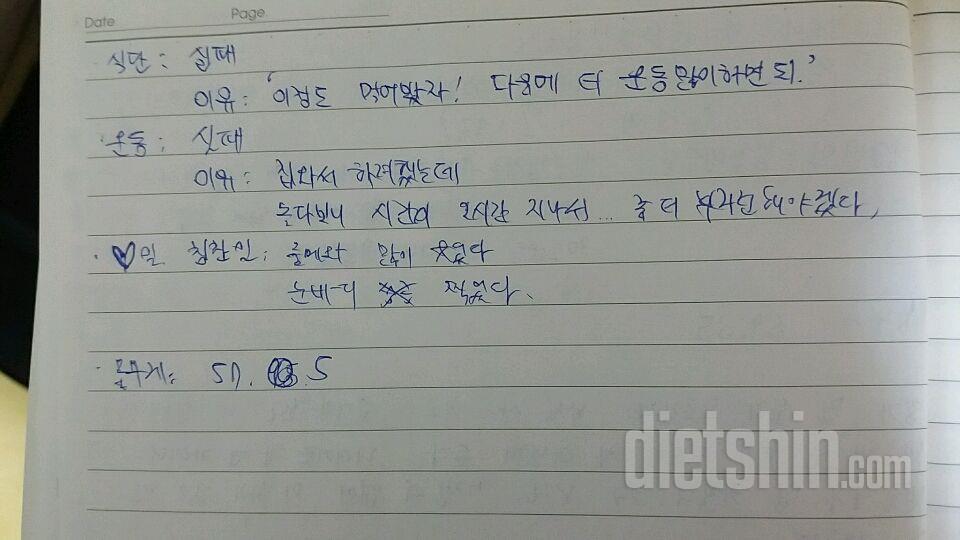 Date Page
식단 : 실패
이유 : '이정도 먹어봤자! 다음에 더 운동많이하면 되.'
·운동 : 실패
이유 : 집와서 하려했는데
놀다보니 시간이 2시간 지나서... 좀 더 해야겠다,
· ♡일. 칭찬일 : 많이 웃었다
적었다.
· 몸무게 : 57. 5
dietshin.com